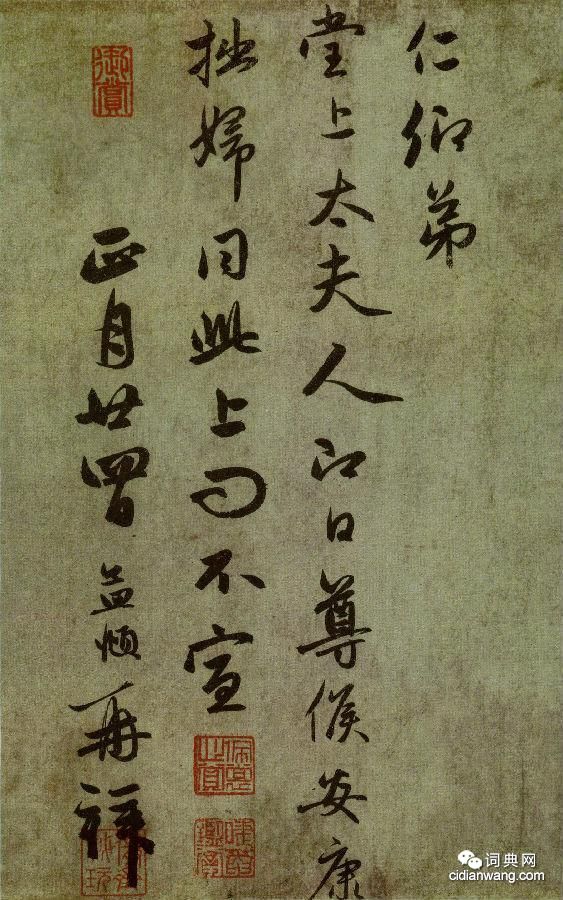 仁仰弟
堂上太夫人即日尊候安康
拙婦同此上問不宣
正月廿四日 益 再拜
御賞
词典网
cidianwang.com